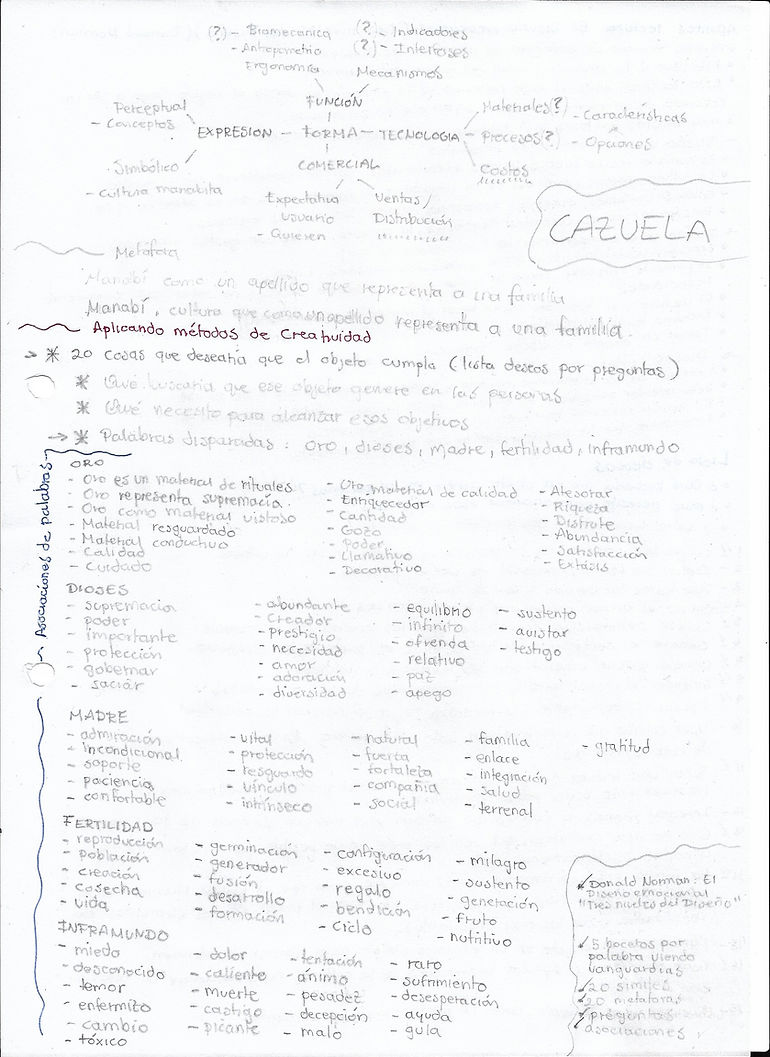 (?) - Biomecanica
- Antropometria
Ergonomía
(?) - Indicadores
(?) - Interfases
Mecanismos
FUNCIÓN
Perceptual
- Conceptos
EXPRESION - FORMA - TECNOLOGIA
Materiales(?)
- Procesos(?)
Costos
- Características
- Opciones
Simbólico
- Cultura manabita
COMERCIAL
Expectativa
usuario
- Quieren
Ventas/
Distribución
CAZUELA
Metáfora
Manabí como un apellido que representa a una familia
Manabí, cultura que como un apellido representa a una familia.
Aplicando métodos de Creatividad
→ * 20 cosas que desearia que el objeto cumpla (lista deseos por preguntas)
* Qué buscaria que ese objeto genere en las personas
* Qué necesito para alcanzar esos objetivos
→ * Palabras disparadas: oro, dioses, madre, fertilidad, inframundo
Asociaciones de palabras
ORO
- Oro es un material de rituales
- Oro representa supremacía.
- Oro como material vistoso
- Material resguardado
- Material conductivo
- Calidad
- Cuidado
- Oro material de calidad
- Enriquecedor
- Cantidad
- Gozo
- Poder
- Llamativo
- Decorativo
- Atesorar
- Riqueza
- Disfrute
- Abundancia
- Satisfacción
- Extásis
DIOSES
- supremacia
- poder
- importante
- protección
- gobernar
- saciar
- abundante
- Creador
- prestigio
- necesidad
- amor
- adoración
- diversidad
- equilibrio
- infinito
- ofrenda
- relativo
- paz
- apego
- sustento
- avistar
- testigo
MADRE
- admiración
- incondicional
- soporte
- paciencia
- confortable
- vital
- protección
- resguardo
- vínculo
- intrínseco
- natural
- fuerza
- fortaleza
- compañia
- social
- familia
- enlace
- integración
- salud
- terrenal
- gratitud
FERTILIDAD
- reproducción
- población
- creación
- cosecha
- vida
- germinación
- generador
- fusión
- desarrollo
- formación
- configuración
- excesivo
- regalo
- bendición
- Ciclo
- milagro
- sustento
- generación
- fruto
- nutritivo
INFRAMUNDO
- miedo
- desconocido
- temor
- enfermito
- cambio
- tóxico
- dolor
- caliente
- muerte
- castigo
- picante
- tentación
- ánimo
- pesadez
- decepción
- malo
- raro
- sufrimiento
- desesperación
- ayuda
- gula
Donald Norman: El
Diseño emocional
"Tres niveles del Diseño"
5 bocetos por
palabra viendo
vanguardias
20 similes
20 metaforas
preguntas
asociaciones